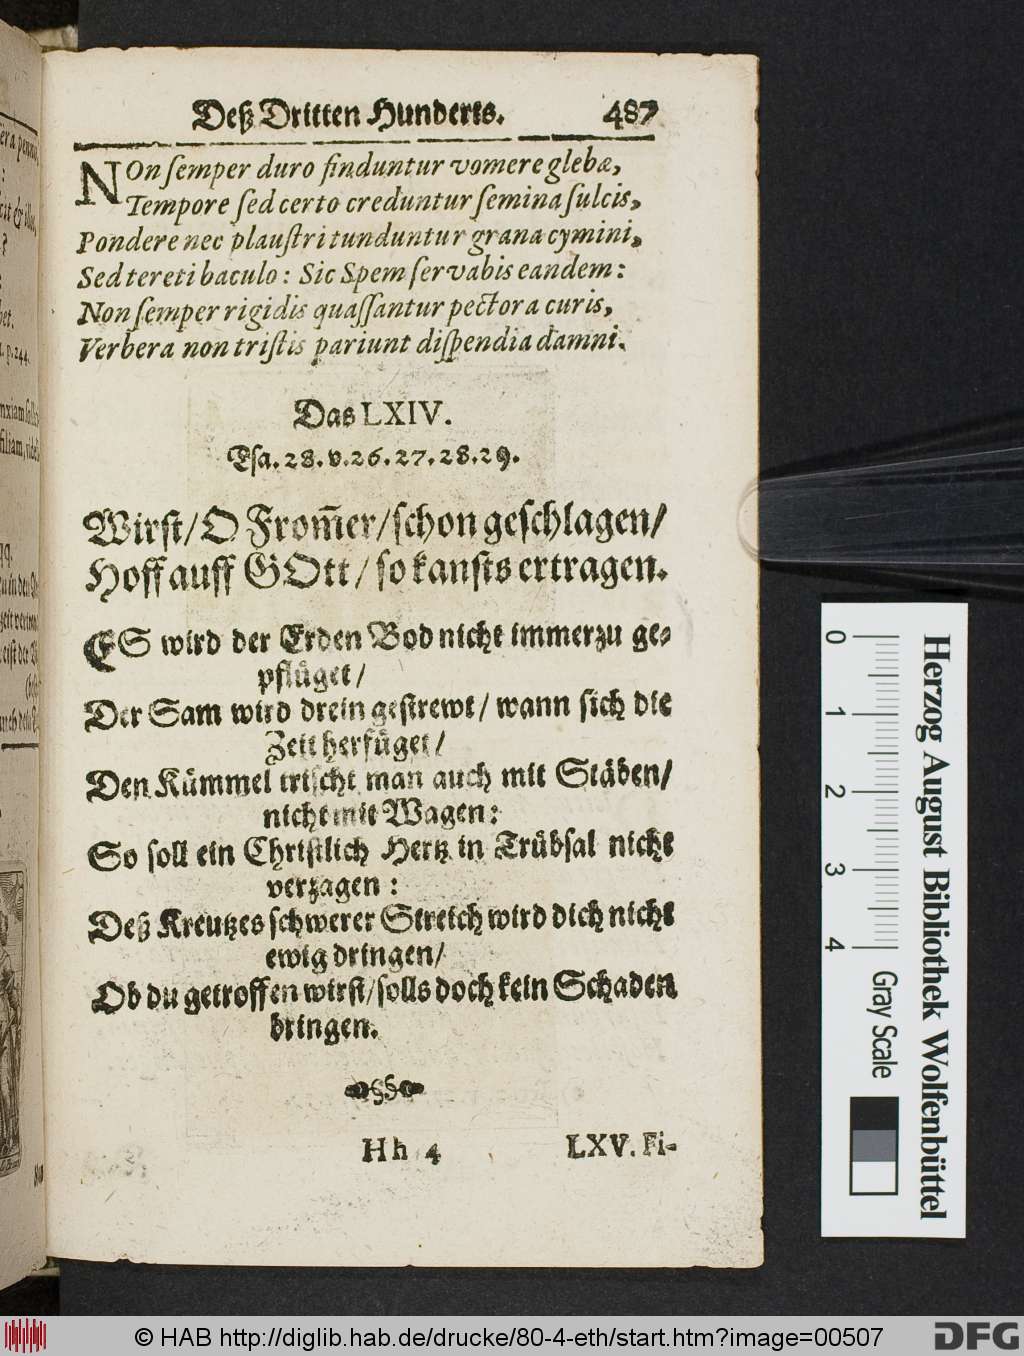 Deß Dritten Hunderts. 487
NOn ſemper duro finduntur vomere glebæ,
Tempore ſed certo creduntur ſemina ſulcis,
Pondere nec plauſtri tunduntur grana cymini,
Sed tereti baculo: Sic Spem ſervabis eandem:
Non ſemper rigidis quaſſantur pectora curis,
Verbera non triſtis pariunt diſpendia damni.
Das LXIV.
Eſa. 28. v. 26. 27. 28. 29.
Wirſt/ O From̃er/ ſchon geſchlagen/
Hoff auff GOtt/ ſo kanſts ertragen.
ES wird der Erden Bod nicht immerzu ge-
pflüget/
Der Sam wird drein geſtrewt/ wann ſich die
Zeit herfüget/
Den Kümmel triſcht man auch mit Stäben/
nicht mit Wagen:
So ſoll ein Chriſtlich Hertz in Trübſal nicht
verzagen:
Deß Kreutzes ſchwerer Streich wird dich nicht
ewig dringen/
Ob du getroffen wirſt/ ſolls doch kein Schaden
bringen.
Hh 4 LXV. Fi-
0 1 2 3 4
Herzog August Bibliothek Wolfenbüttel
Gray Scale
© HAB http://diglib.hab.de/drucke/80-4-eth/start.htm?image=00507
DFG